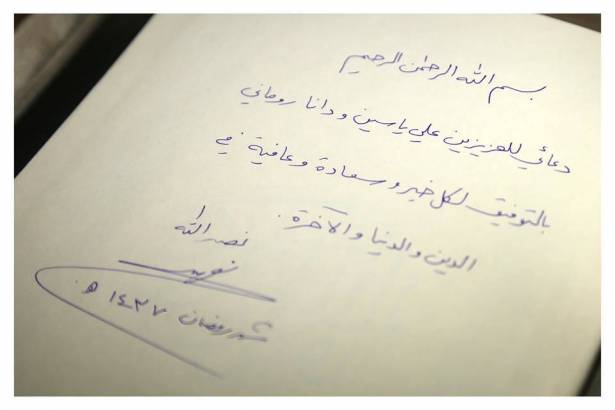 بسم الله الرحمن الرحيم
دعائي للعزيزين علي ياسين ودانا روماني
بالتوفيق لكل خير وسعادة وعافية في
الدين والدنيا والآخرة.
نصر الله
شهر رمضان ١٤٣٧ هـ